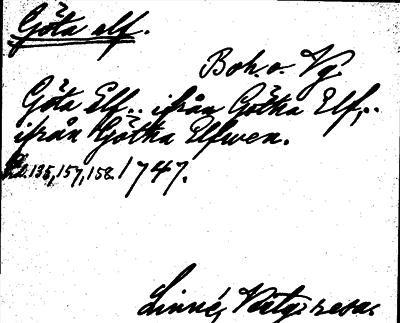 Göta elf.
Boh. o. Vg.
Göta Elf.. ifrån Götha Elf,..
ifrån Götha Elfwen.
S. 135, 157, 158. 1747.
Linné, Västg. resa.